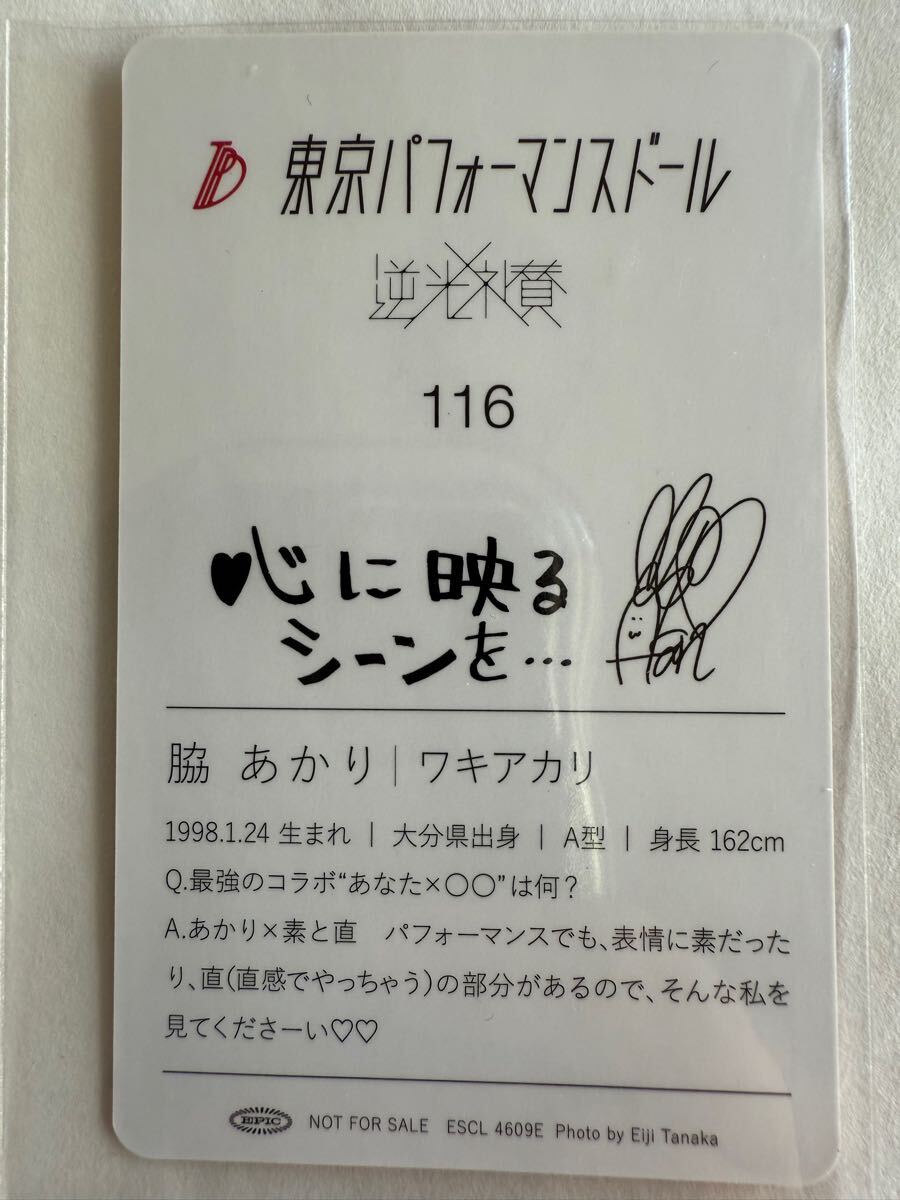 TPD 東京パフォーマンスドール
逆光礼賛
116
♥心に映る
シーンを…
脇 あかり|ワキアカリ
1998.1.24 生まれ | 大分県出身 | A型 | 身長 162cm
Q.最強のコラボ“あなた×〇〇”は何？
A.あかり×素と直　パフォーマンスでも、表情に素だった
り、直(直感でやっちゃう)の部分があるので、そんな私を
見てくださーい♡♡
EPIC NOT FOR SALE ESCL 4609E Photo by Eiji Tanaka